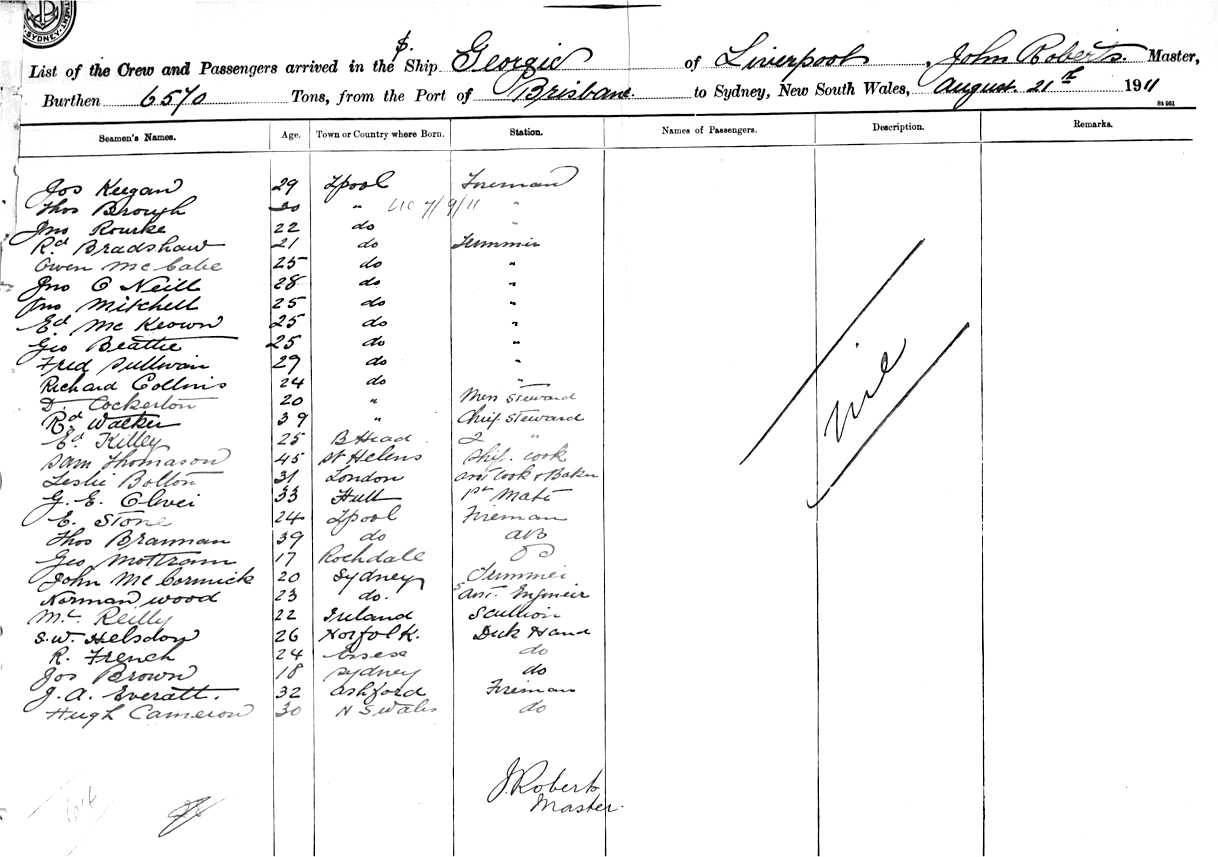 SYDNEY.
List of the Crew and Passengers arrived in the S. Ship Georgic of Liverpool, John Roberts Master,
Burthen 6570 Tons, from the Port of Brisbane to Sydney, New South Wales, August 21st 1911
Seamen's Names. Age. Town or Country where Born. Station. Names of Passengers. Description. Remarks.
Jos Keegan 29 Lpool Fireman
Thos Brough 30 " 7/9/11 "
Jno Rourke 22 do "
Rd Bradshaw 21 do Trimmer
Owen McCabe 25 do "
Jno O Neill 28 do "
Jno Mitchell 25 do "
Ed Mc Keown 25 do "
Geo Beattie 25 do "
Fred Sullivan 29 do "
Richard Collins 24 do "
D. Cockerton 20 " Mess Steward
Rd Walker 39 " Chief Steward
Ed Killey 25 B Head 2 "
Sam Thomason 45 St Helens Ship's Cook
Leslie Bolton 31 London Asst Cook & Baker
G. E. 33 Hull 1st Mate
E. Stone 24 Lpool Fireman
Thos Brannan 39 do AB
Geo Mottram 17 Rochdale OS
John McCormick 20 Sydney Trimmer
Norman Wood 23 do. Asst. Engineer
Reilly 22 Ireland Scullion
S.W. Helsdon 26 Norfolk. Deck Hand
R. French 24 Essex do
Jos Brown 18 Sydney do
J. A. Everatt. 32 Ashford Fireman
Hugh Cameron 30 N S Wales do
Nil
J Roberts
Master.